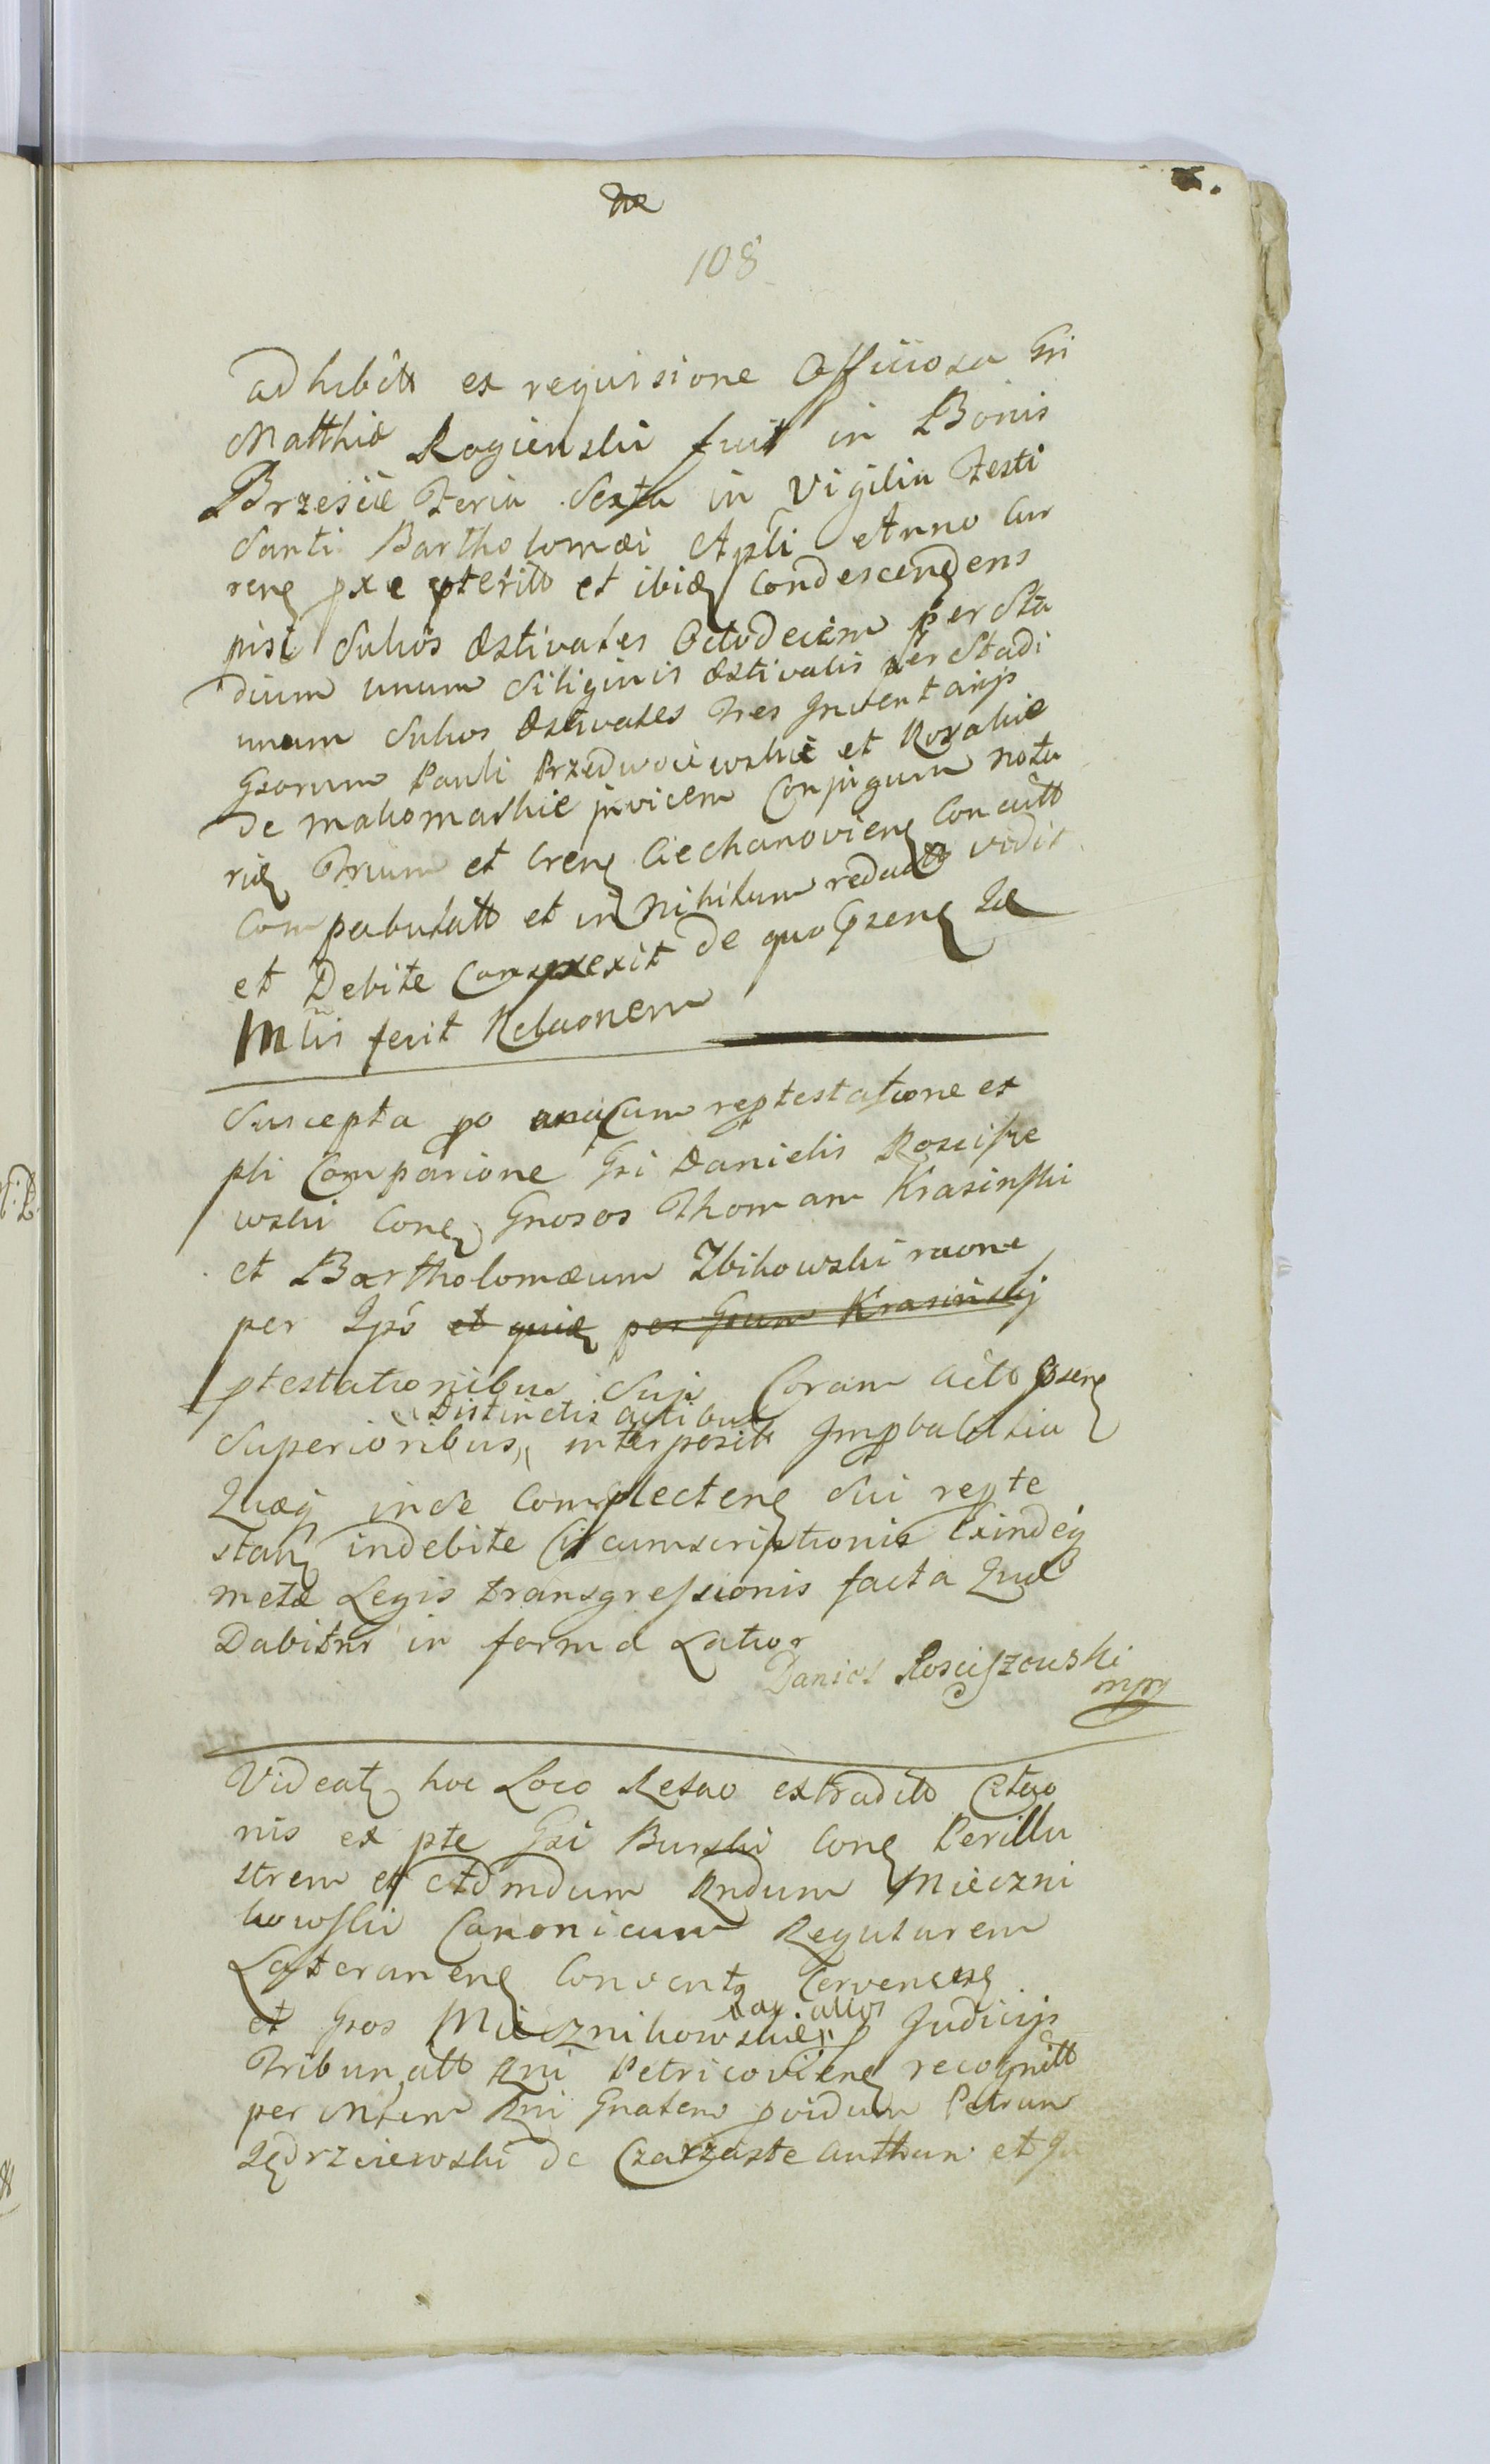 108
adhibitt ex requisione Officiosa Gsi
Matthiæ Rogienski fuit in Bonis
Brzescie Feria Sexta in Vigilia Festi
Santi Bartholomæi Apli Anno Cur
ren præpterito et ibiq condescendens
pisi Sulcos Æstivales Octodecim per Sta
dium unum Siliginis æstivalis per Stadi
unum Sulcos Æstivales Tres Inventarijs
Gsorum Pauli Przedwoiewskie et Rozalie
de Makomaskie invicem Conjugum nota
riæ Trium et Cren Ciechanovien Concultt
Compabulatt et in Nihilum redactt vidit
et Debite Conspexit de quo Psens Se
Mlis fecit Relaonem
Suscepta po una cum reptestatione ex
pli Comparione Gsi Danielis Roscisze
wski Con Gnosos Thomam Krasinski
et Bartholomæum Zbikowski raone
per Ips et quia per Gsum Krasinskij
ptestationibus Sup Coram actt psen
Distinctis actibus
Superioribus interposit Impbabilia
Quæq inde Complecten Sui repte
stan indebite Circumscriptionis Exindeq
metæ Legis transgressionis facta Quæ
Dabitur in forma Latior
Daniel Rosciszowski
mpp
Videat hoc Loco Relao extradit Citao
nis ex pte Gsi Burski Con Perillu
strem et Admdum Rndum Mieczni
kowski Canonicum Regularem
Lateranen Convent Cervenesc
et Gsos Miecznikowskie alios Judicijs
Tribunatt Rni Petricovien recognitt
per Mtrm Rni Gnalem pvidum Petrum
Jędrzeiewski de Czarzaste authum et Ju